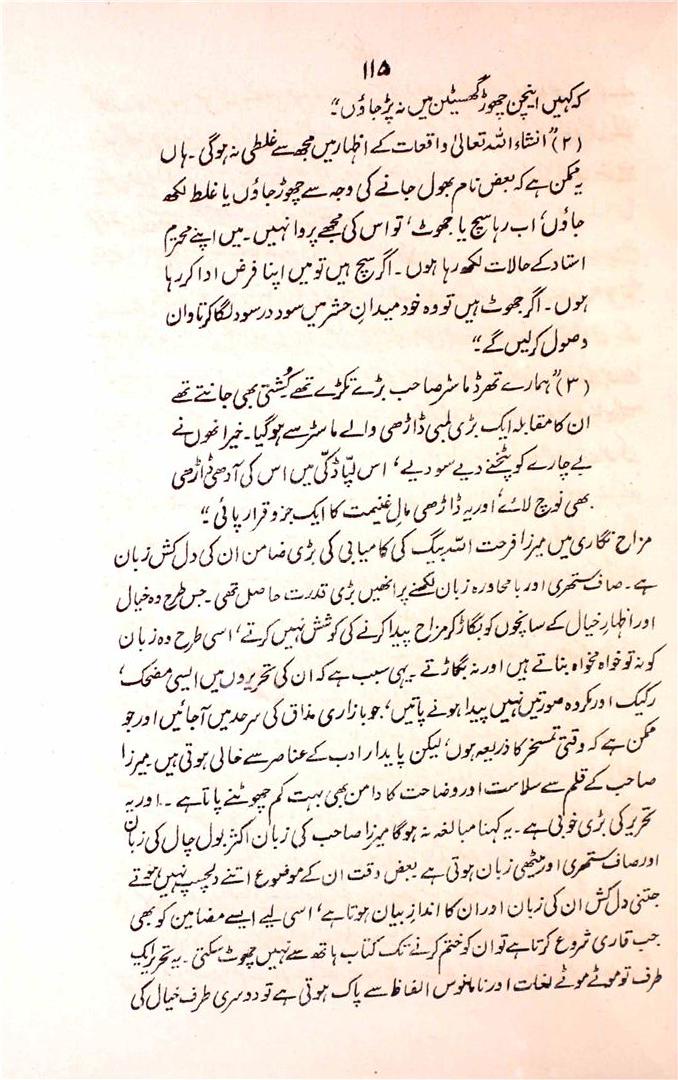 ۱۱۵
کہ کہیں اینچن چھوڑ گھسیٹن میں نہ پڑ جاؤں۔"
(۲) "انشاء اللہ تعالیٰ واقعات کے اظہار میں مجھ سے غلطی نہ ہوگی۔ ہاں
یہ ممکن ہے کہ بعض نام بھول جانے کی وجہ سے چھوڑ جاؤں یا غلط لکھ
جاؤں، اب رہا سچ یا جھوٹ، تو اس کی مجھے پروا نہیں۔ میں اپنے محترم
استاد کے حالات لکھ رہا ہوں۔ اگر سچ ہیں تو میں اپنا فرض ادا کر رہا
ہوں۔ اگر جھوٹ ہیں تو وہ خود میدانِ حشر میں سود در سود لگا کر تاوان
وصول کر لیں گے۔"
(۳) "ہمارے تھرڈ ماسٹر صاحب بڑے تکڑے تھے کُشتی بھی جانتے تھے
ان کا مقابلہ ایک بڑی لمبی ڈاڑھی والے ماسٹر سے ہوگیا۔ خیر انھوں نے
بے چارے کو پٹخنے دیے سو دیے، اس لپّا ڈکّی میں اس کی آدھی ڈاڑھی
بھی نوچ لائے، اور یہ ڈاڑھی مالِ غنیمت کا ایک جزو قرار پائی۔"
مزاح نگاری میں میرزا فرحت اللہ بیگ کی کامیابی کی بڑی ضامن ان کی دل کش زبان
ہے۔ صاف ستھری اور بامحاورہ زبان لکھنے پر انھیں بڑی قدرت حاصل تھی۔ جس طرح وہ خیال
اور اظہارِ خیال کے سانچوں کو بگاڑ کر مزاح پیدا کرنے کی کوشش نہیں کرتے، اسی طرح وہ زبان
کو نہ تو خواہ مخواہ بناتے ہیں اور نہ بگاڑتے۔ یہی سبب ہے کہ ان کی تحریروں میں ایسی مضحک،
رکیک اور مکروہ صورتیں نہیں پیدا ہونے پاتیں، جو بازاری مذاق کی سرحد میں آجائیں اور جو
ممکن ہے کہ وقتی تمسخر کا ذریعہ ہوں، لیکن پایدار ادب کے عناصر سے خالی ہوتی ہیں۔ میرزا
صاحب کے قلم سے سلاست اور وضاحت کا دامن بھی بہت کم چھوٹنے پاتا ہے۔ اور یہ
تحریر کی بڑی خوبی ہے۔ یہ کہنا مبالغہ نہ ہوگا میرزا صاحب کی زبان اکثر بول چال کی زبان
اور صاف ستھری اور میٹھی زبان ہوتی ہے بعض وقت ان کے موضوع اتنے دلچسپ نہیں ہوتے
جتنی دل کش ان کی زبان اور ان کا اندازِ بیان ہوتا ہے، اسی لیے ایسے مضامین کو بھی
جب قاری شروع کرتا ہے تو ان کو ختم کرنے تک کتاب ہاتھ سے نہیں چھوٹ سکتی۔ یہ تحریر ایک
طرف تو موٹے موٹے لغات اور نامانوس الفاظ سے پاک ہوتی ہے تو دوسری طرف خیال کی